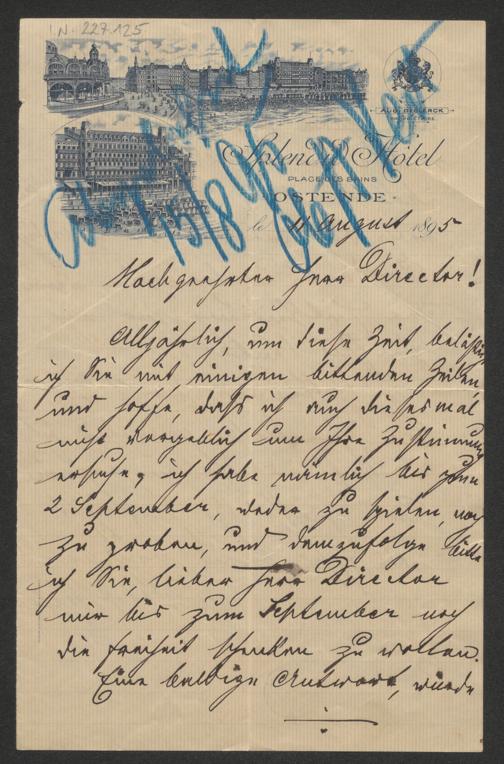 I.N. 227.125
AUG. DECLERCK
PROPRIÉTAIRE
Splendid Hôtel
PLACE DES BAINS
OSTENDE
le 11 August 1895
15/8 95
Hochgeehrter Herr Director!
Alljährlich, um diese Zeit, belästige
ich Sie mit einigen bittenden Zeilen,
und hoffe, dass ich auch diesmal
nicht vergeblich um Ihre Zustimmung
ersuche, ich habe nämlich bis zum
2 September, weder zu spielen, noch
zu proben, und demzufolge bitte
ich Sie, lieber Herr Director
mir bis zum September noch
die Freiheit schenken zu wollen.
Eine baldige Antwort, würde